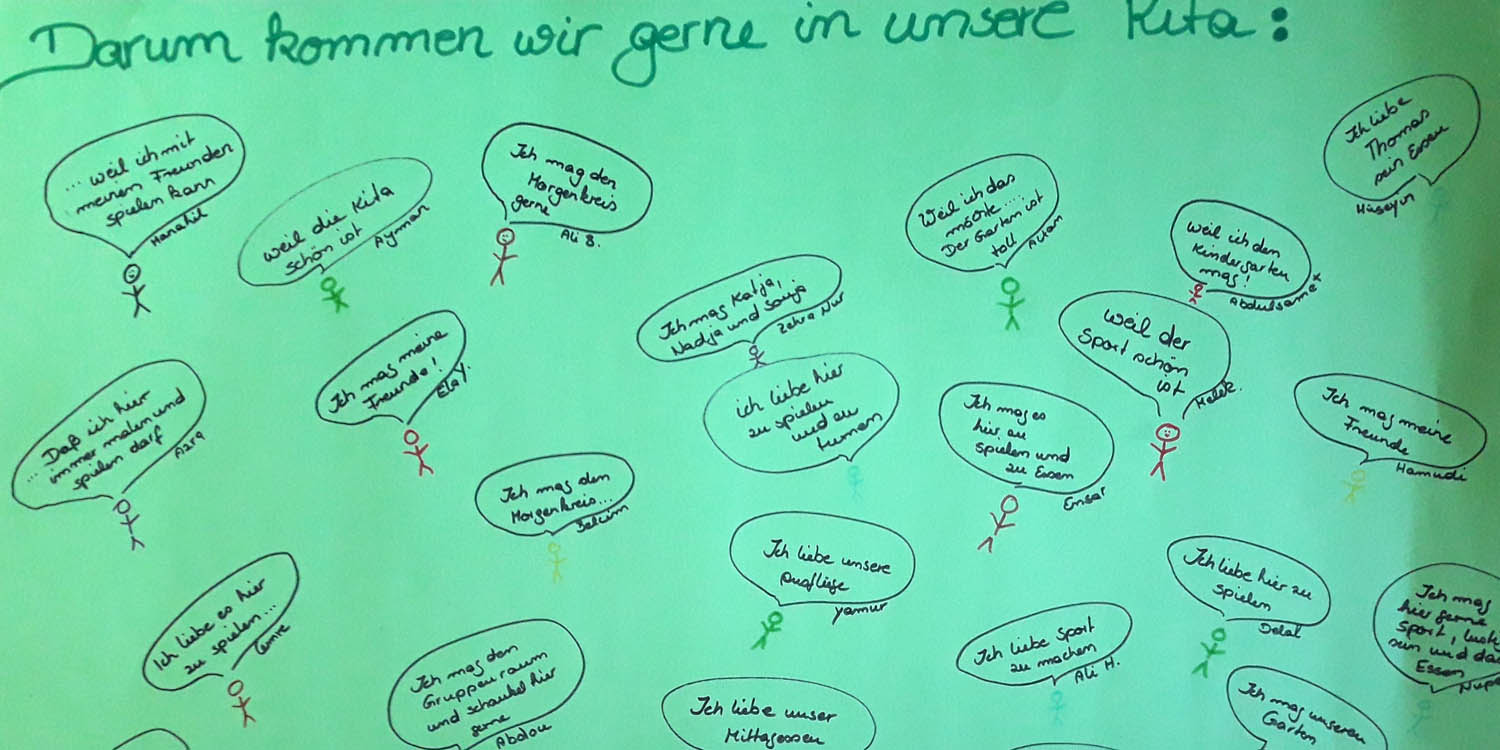 Darum kommen wir gerne in unsere Kita:
... weil ich mit
meinen Freunden
spielen kann
Manahil
weil die Kita
schön ist
Ayman
Ich mag den
Morgenkreis
gerne
Ali B.
Weil ich das
möchte....
Der Garten ist
toll
Ich liebe
Thomas
sein Essen
Hüseyin
weil ich den
Kindergarten
mag!
Abdulsamet
Ich mag Katja,
Nadja und Sonja
Zehra Nur
weil der
Sport schön
ist
Melek.
Ich mag meine
Freunde!
Elay.
... Daß ich hier
immer malen und
spielen darf
Azra
ich liebe hier
zu spielen
und zu
turnen
Ich mag es
hier zu
spielen und
zu Essen
Ensar
Ich mag meine
Freunde
Hamudi
Ich mag den
Morgenkreis...
Ich liebe unsere
Ausflüge
Yamur
Ich liebe hier zu
spielen
Ich liebe es hier
zu spielen...
Emre
Ich mag den
Gruppenraum
und schaukel hier
gerne
Ich liebe Sport
zu machen
Ali H.
Ich mag
hier gerne
Sport,
sein und da
Essen
Ich liebe unser
Mittagessen
Ich mag unseren
Garten